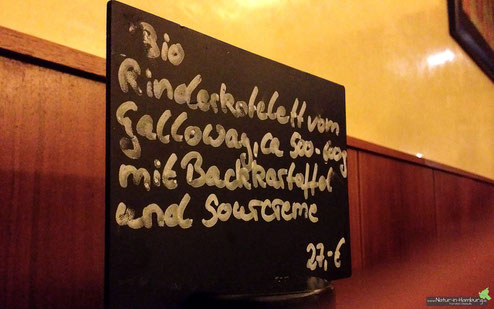 Bio
Rinderkotelett vom
Galloway, ca 500-600g
mit Backkartoffel
und Sourcreme
27,-€
www.Natur-in-Hamburg.de